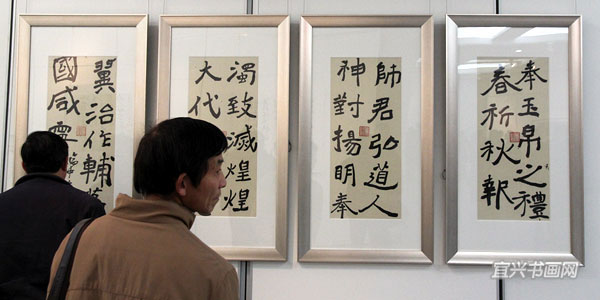 奉玉帛之禮
春祈秋報
師君弘道人
神對揚明奉
濁致滅煌煌
大代
翼治作輔
國咸寧
宜兴书画网